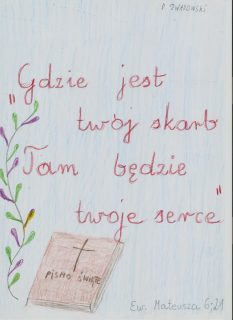 „Gdzie jest
twój skarb
Tam będzie
twoje serce”
PISMO ŚWIĘTE
Ew. Mateusza 6;21